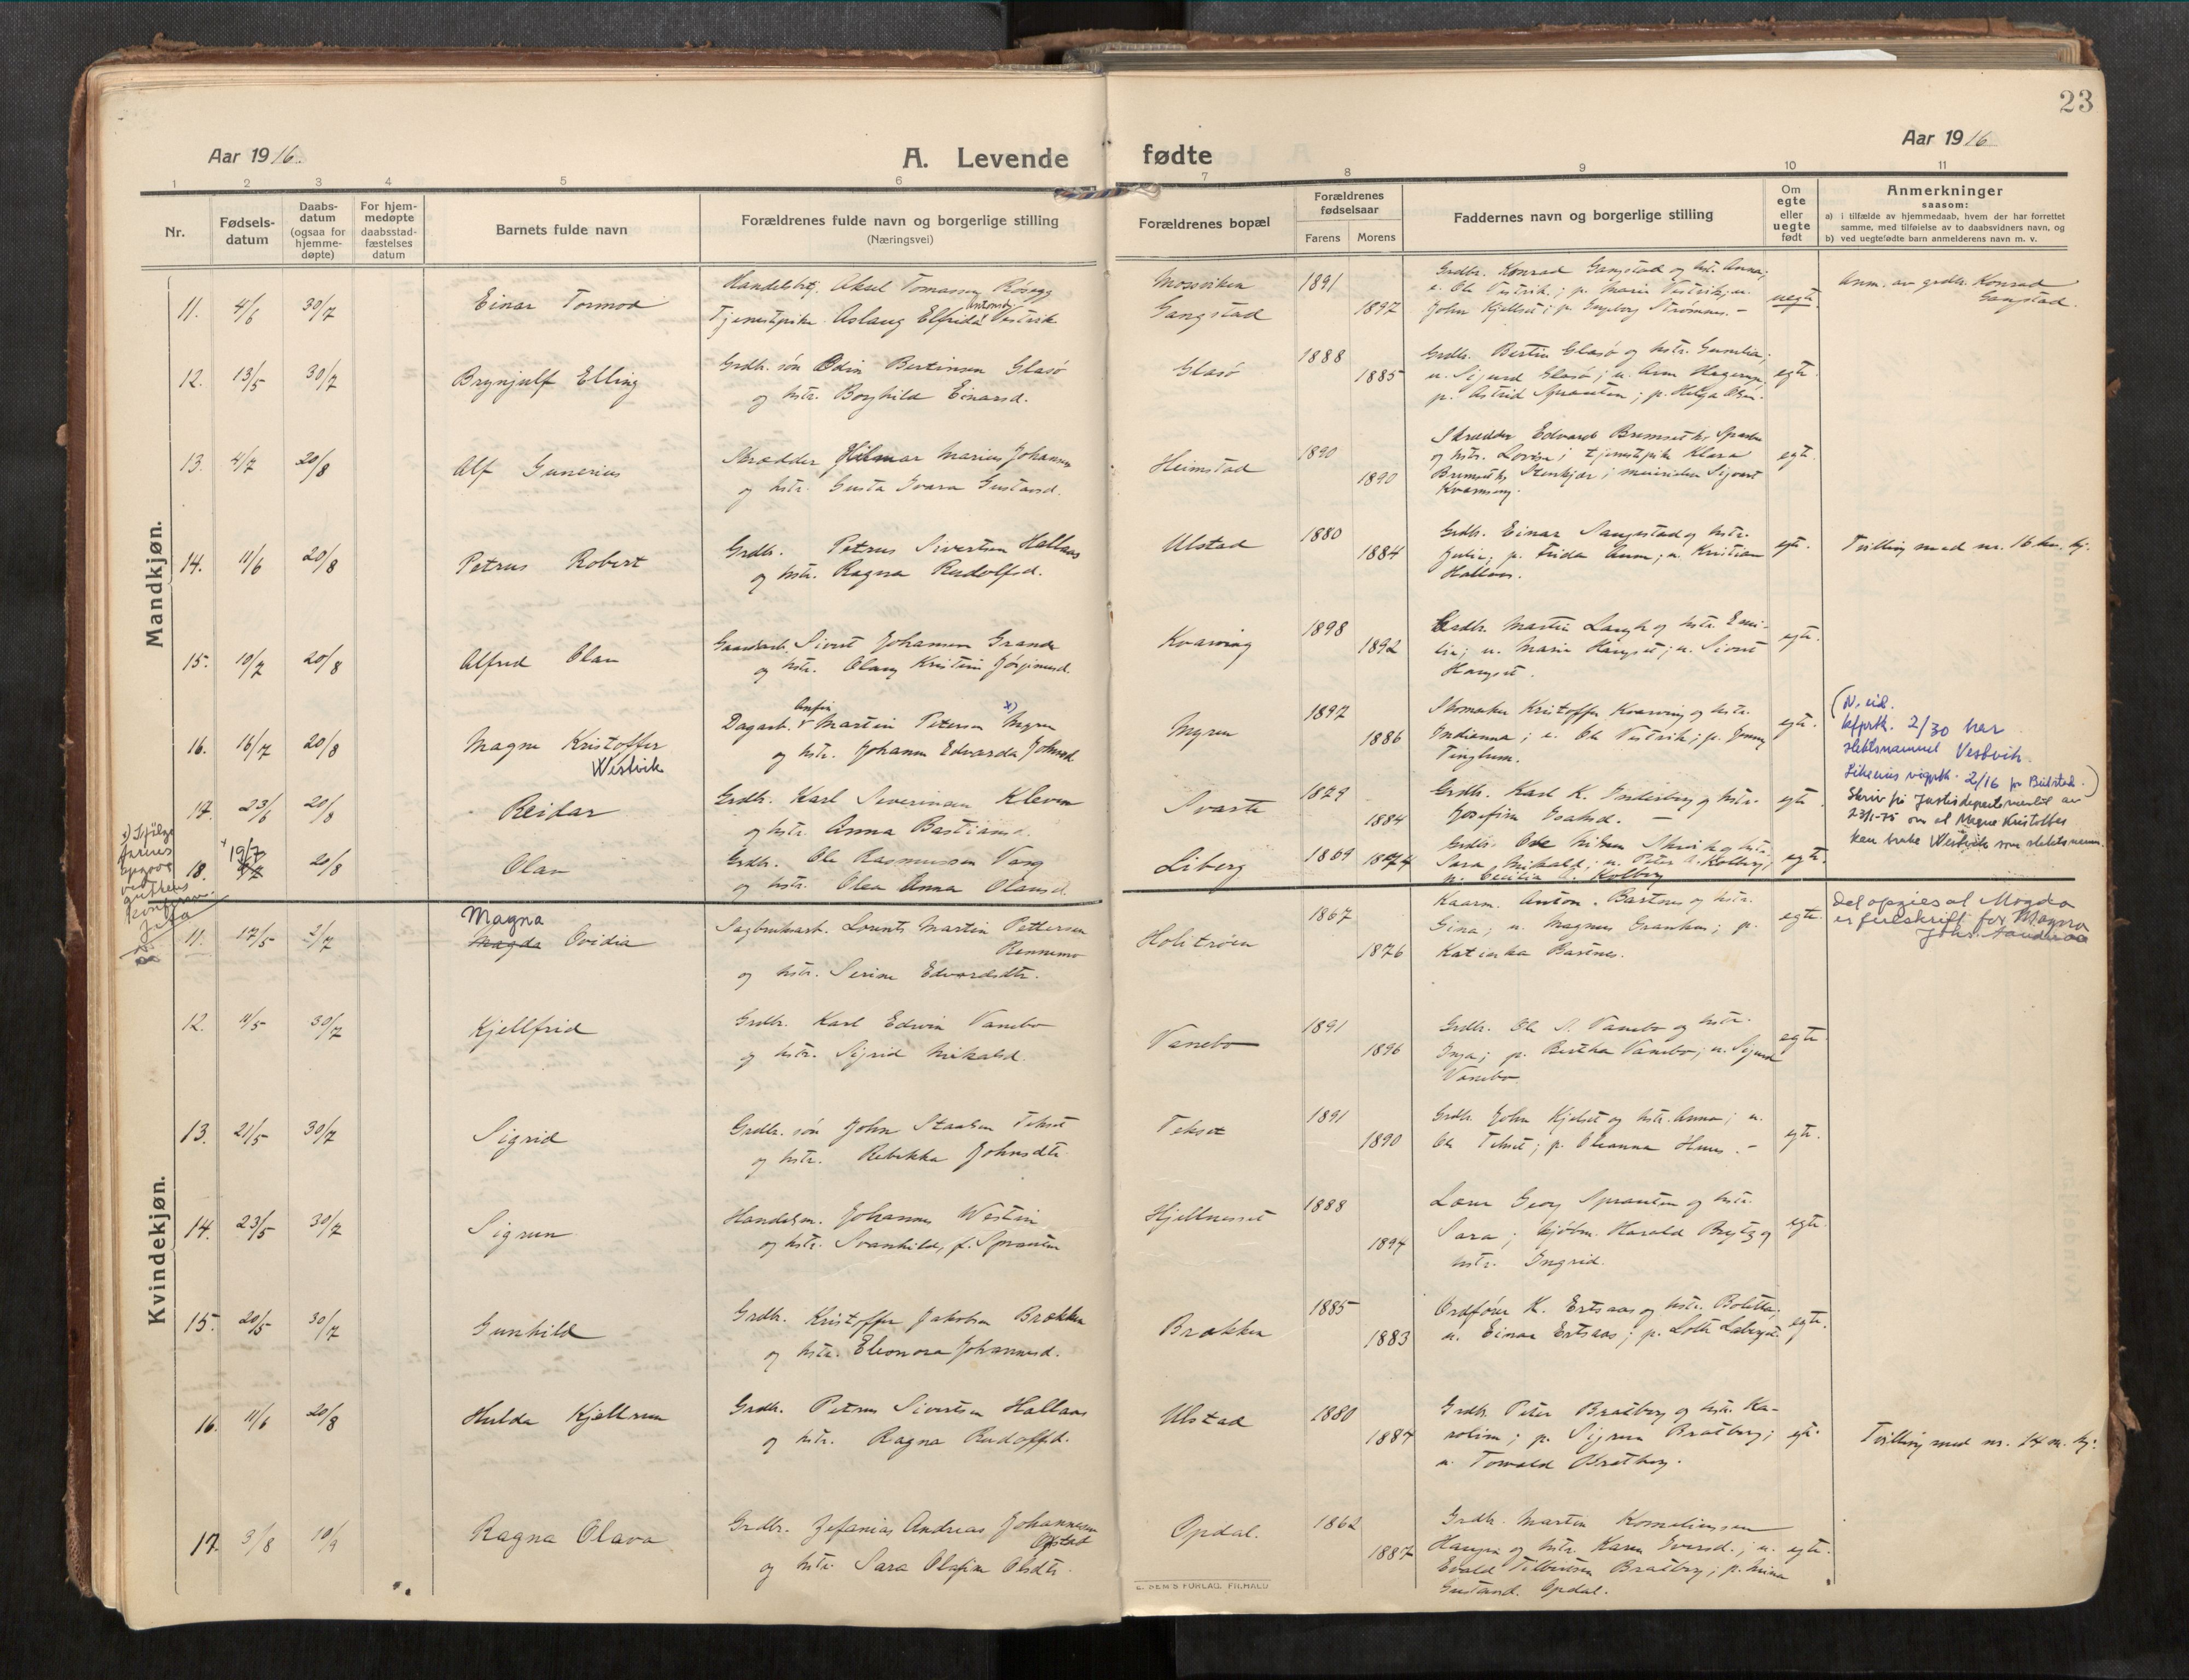 23
Aar 1916.
A. Levende fødte
Aar 1916
1 2 3 4 5 6 7 8 9 10 11
Nr.
Fødsels-
datum
Daabs-
datum
(ogsaa for
hjemme-
døpte)
For hjem-
medøpte
daabsstad-
fæstelses
datum
Barnets fulde navn
Forældrenes fulde navn og borgerlige stilling
(Næringsvei)
Forældrenes bopæl
Forældrenes
fødselsaar
Farens Morens
Faddernes navn og borgerlige stilling
Om
egte
eller
uegte
født
Anmerkninger
saasom:
a) i tilfælde av hjemmedaab, hvem der har forrettet
samme, med tilføielse av to daabsvidners navn, og
b) ved uegtefødte barn anmelderens navn m. v.
Mandkjøn.
11. 4/6 30/7 Einar Tormod
Aksel Tomassen
Tjenestpike Aslaug Elfrida Vestvik
Mosviken
Gangstad
1891
1897
Grdbr. Konrad Gangstad og hstr. Anna;
u. Ole Vestvik; p. Marie Vestvik; u.
John Kjellset; p. Ingeborg Strømnes. -
uegte.
Anm. av grdbr. Konrad
Gangstad.
12. 13/5 30/7 Brynjulf Elling
Grdbr. søn Odin Bertinsen Glasø
og hstr. Borghild Einarsd.
Glasø
1888
1885
Grdbr. Bertin Glasø og hstr. Gunelia;
u. Sigurd Glasø; u. Arne Hagerup;
p. Astrid Sprauten; p. Helga Olsen.
egte.
13. 4/7 20/8 Alf Gunerius
Skrædder Hilmar Marius Johansen
og hstr. Gusta Ivara Gustavsd.
Heimstad
1890
1890
Skrædder Edvard Bremseth, Sparbu
og hstr. Lovise; tjenestpike Klara
Bremseth, Stenkjær; Sigvart
egt.
14. 11/6 20/8 Petrus Robert
Grdbr. Petrus Sivertsen Hallaas
og hstr. Ragna Rudolfsd.
Ulstad
1880
1884
Grdbr. Einar Gangstad og hstr.
Julie; p. Frida Aune; u. Kristian
Hallaas.
egt.
Tvilling med nr. 16 kv. kj.
15. 10/7 20/8 Alfred Olav
Gaardsarb. Sivert Johansen Grande
og hstr. Olaug Kristine
Kvarving
1898
1892
Grdbr. Martin Langli og hstr. Emi-
lie; u. Marie Hangset; u. Sivert
Hangset.
egte.
16. 16/7 20/8 Magne Kristoffer
Westvik
Dagarb. Martin Petersen Myren x)
og hstr. Johanne Edvarda Johnsd
Myren
1897
1886
Skomaker Kristoffer Kvarving og hstr.
Indianna; u. Ole Vestvik; p. Jenny
Tinglum.
egte.
2/30 har
slektsnavnet Vestvik.
Likeens vigprk. 2/16 for Beitstad.)
Skriv fra Justisdepartementet av
23/1-75 om at Magne Kristoffer
kan bruke Westvik som slektsnavn.
17. 23/6 20/8 Reidar
Grdbr. Karl Severinsen Kleven
og hstr. Anna Bastiansd.
Svarte
1879
1884
Grdbr. Karl K. Inderberg og hstr.
Josefine Isaksd. -
egte.
18. 19/7 20/8 Olav
Grdbr. Ole Rasmussen Vang
og hstr. Olea Anna Olausd.
Liberg
1869 1874
Sara; u. Peter A. Kolberg;
p. Cecilia A. Kolberg
egte.
Kvindekjøn.
11. 17/5 2/7 Magna
Magda Ovidia
Sagbruksarb. Lorents Martin Pettersen
Rennemo
og hstr. Serine Edvardsdtr.
Holstrøen
1867
1876
Kaarm. Anton Bartnes og hstr.
Gina; u. Magnus Granhus; p.
Katinka Bartnes.
egte.
Det opgies at Magda
er feilskrift for Magna
12. 11/5 30/7 Kjellfrid
Grdbr. Karl Edvin Vanebo
og hstr. Sigrid Mikalsd.
Vanebo
1891
1896
Grdbr. Ole A. Vanebo og hstr.
Inga; p. Bertha Vanebo; u. Sigurd
Vanebo.
egte.
13. 21/5 30/7 Sigrid
Grdbr. søn John Staalsen Tekset
og hstr. Rebekka Johnsdtr.
Tekset
1891
1890
Grdbr. John Kjelset og hstr. Anna; u.
Ole Tekset; p. Oleanna -
egte.
14. 23/5 30/7 Sigrun
Handelsm. Johannes Westin
og hstr. Svanhild, f. Sprauten
Hjellnesset
1888
1894
Lærer Georg Sprauten og hstr.
Sara; kjøbm. Harald Brytz og
hstr. Ingrid.
egte.
15. 20/5 30/7 Gunhild
Grdbr. Kristoffer Jakobsen Brækken
og hstr. Eleonora Johannesd.
Brækken
1885
1883
Ordfører K. Ertsaas og hstr. Bolette;
u. Einar Ertsaas; p. Lotte
egte.
16. 11/6 20/8 Hulda Kjellrun
Grdbr. Petrus Sivertsen Hallaas
og hstr. Ragna Rudolfsd.
Ulstad
1880
1884
Grdbr. Peter Bratberg og hstr. Ka-
roline; p. Sigrun Bratberg;
u. Torvald Bratberg.
egt.
Tvilling med nr. 14 m. kj.
17. 3/8 10/9 Ragna Olava
Grdbr. Zefanias Andreas Johannesen
og hstr. Sara Olufine Olsdtr.
Opdal.
1862
1887
Grdbr. Martin Korneliussen
og hstr. Karen Iversd.; u.
Evald Bratberg; p. Mina
Gustavsd. Opdal.
egte.
E. SEM'S FORLAG, FR.HALD